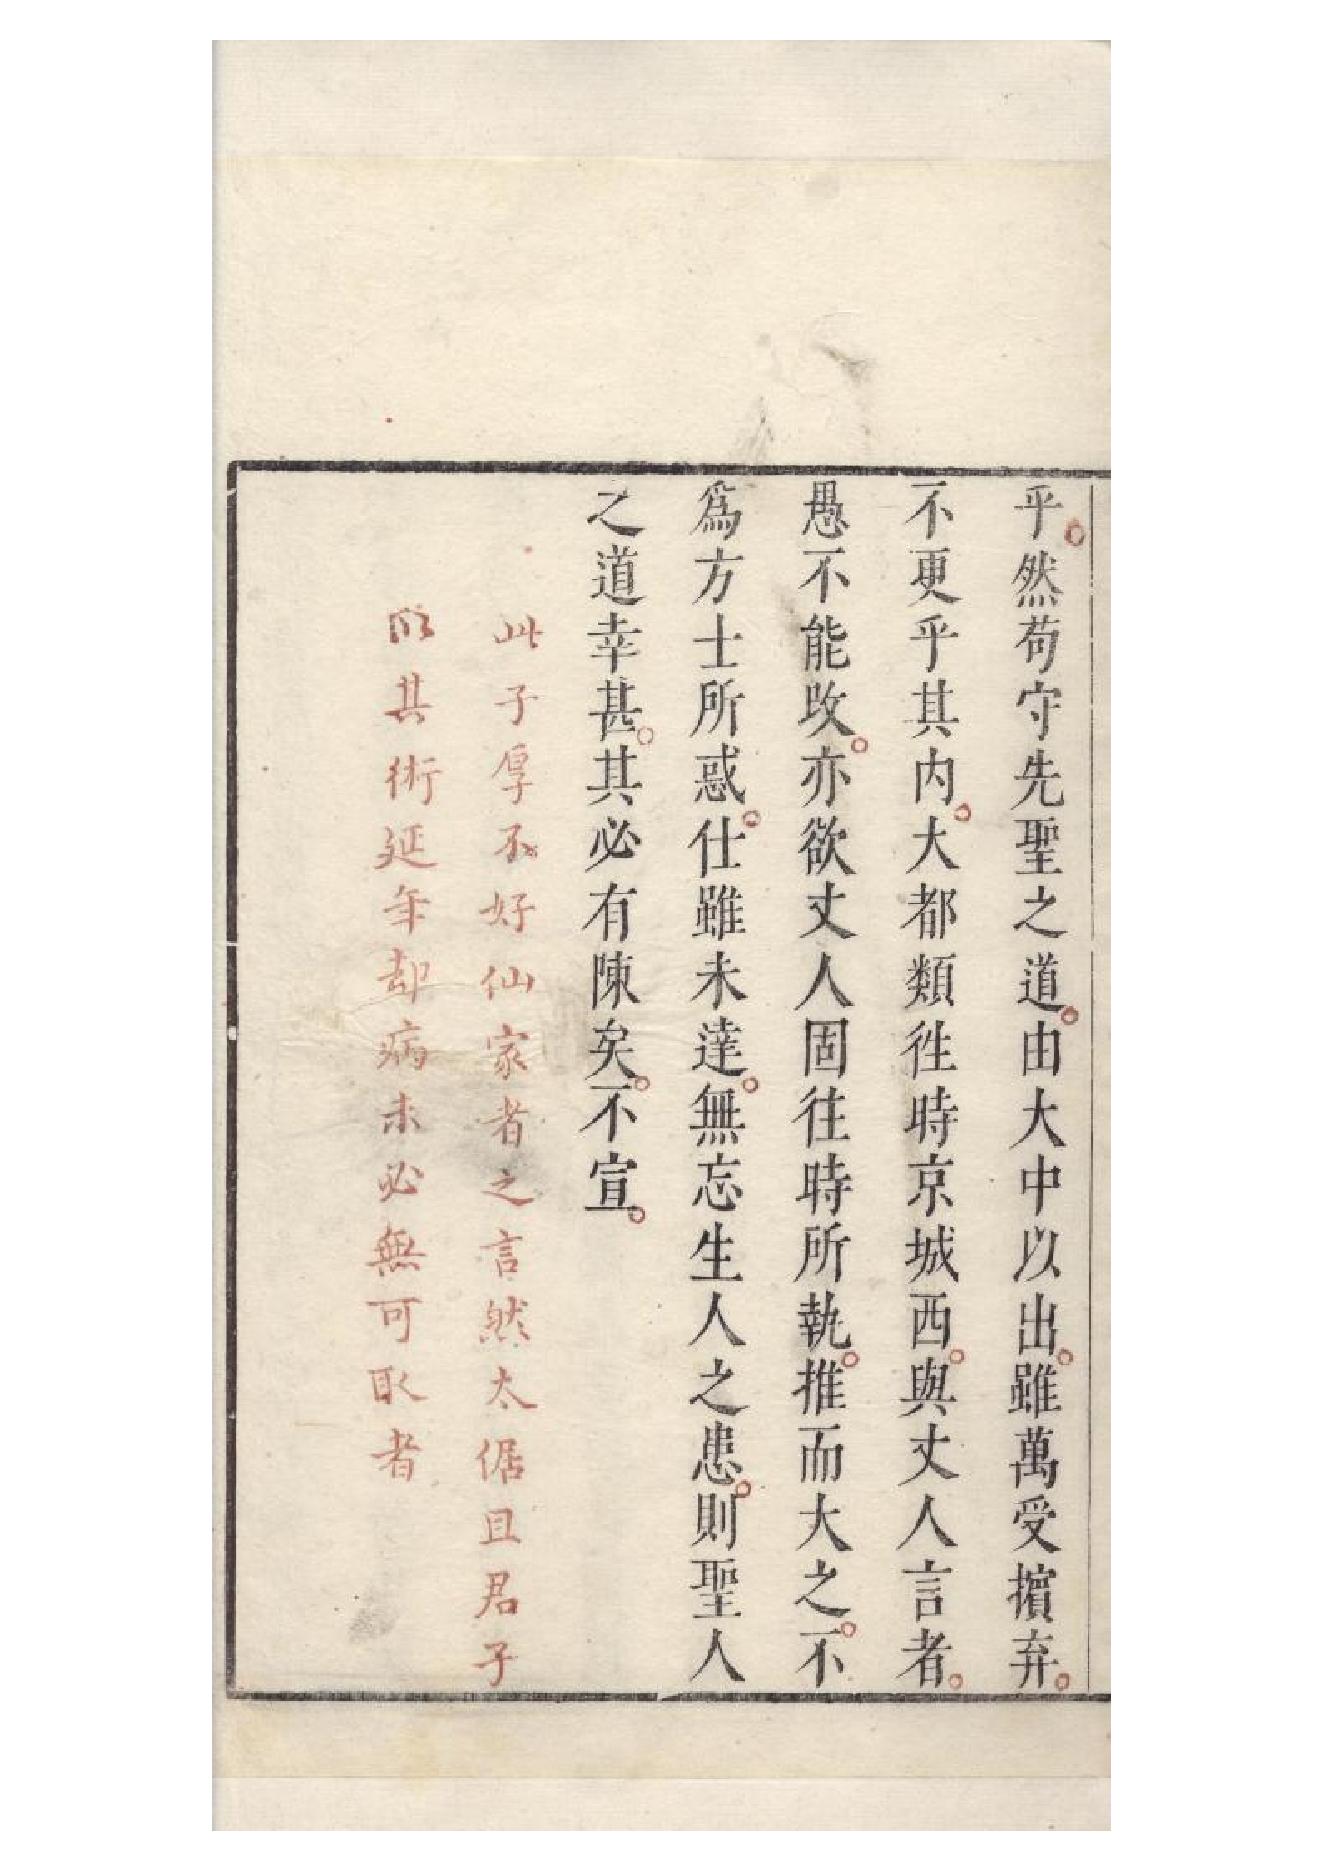 乎然苟守先聖之道由大中以出雖萬受擯弃
不更乎其内大都類徃時京城西與丈人言者
愚不能改亦欲丈人固往時所執推而大之不
爲方士所惑仕雖未達無忘生人之患則聖人
之道幸甚其必有陳矣不宣
此子厚不好仙家者之言然太倨且君子
以其術延年却病未必無可取者